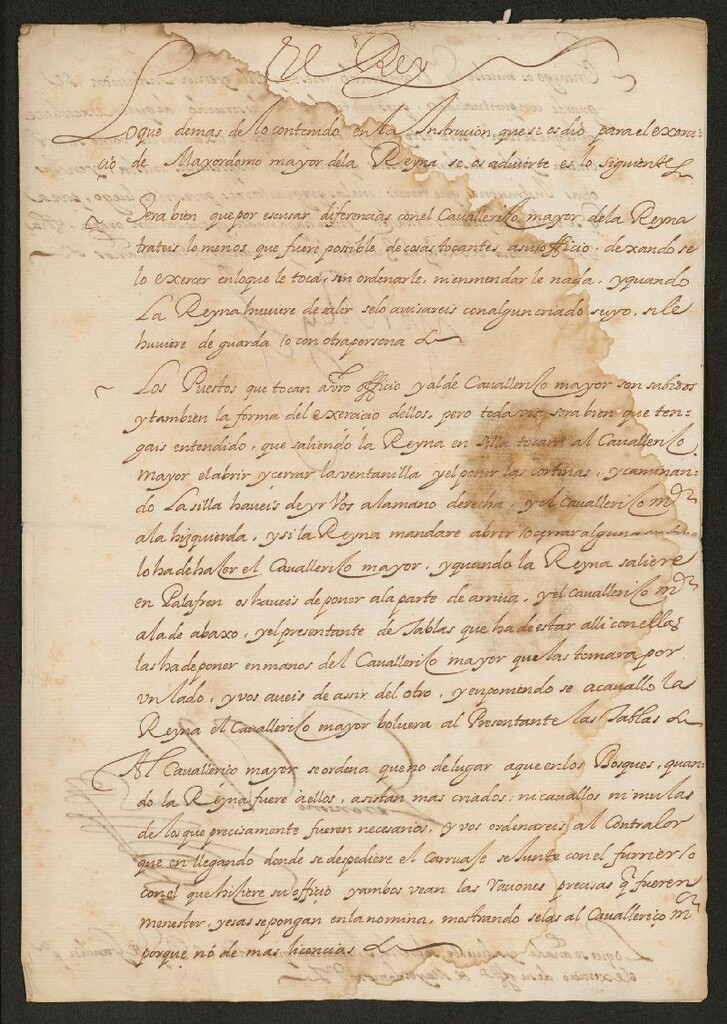 El Rey
Lo que demas de lo contenido en la Instrucion que se os dio para el exerci-
cio de Mayordomo mayor de la Reyna se os aduierte es lo siguiente
Sera bien que por escusar diferencias con el Cauallerizo mayor de la Reyna
trateis lo menos que fuere posible de cosas tocantes a su officio, dexando se
lo exercer en lo que le toca, sin ordenarle, ni enmendar le nada, y quando
La Reyna huuiere de salir se lo auisareis con algun criado suyo, si le
huuiere de guarda / o con otra persona
Los Puestos que tocan a vro officio y al de Cauallerizo mayor son sabidos
y tambien la forma del exercicio dellos, pero toda via sera bien que ten-
gais entendido, que saliendo la Reyna en silla tocara al Cauallerizo
mayor el abrir y cerrar la ventanilla y el poner las cortinas, y caminan-
do La silla haueis de yr Vos a la mano derecha, y el Cauallerizo mor
a la hizquierda, y si la Reyna mandare abrir / o cerrar alguna
lo ha de hazer el Cauallerizo mayor, y quando la Reyna saliere
en Palafren os haueis de poner a la parte de arriua, y el cauallerizo mor
a la de abaxo, y el presentante de Tablas que ha de estar alli con ellas
las ha de poner en manos del Cauallerizo mayor que las tomara por
vn lado, y vos aueis de assir del otro, y en poniendo se a cauallo la
Reyna el Cauallerizo mayor boluera al Presentante las Tablas
Al Cauallerico mayor se ordena que no de lugar a que en los Bosques, quan-
do la Reyna fuere à ellos, asistan mas criados, ni cauallos ni mulas
de los que precisamente fueren necesarios, y vos ordenareis al Contralor
que en llegando donde se despediere el Carruaje se Junte con el furrier / o
con el que hiziere su officio y ambos vean las Raciones precisas q fueren
menester, y esas se pongan en la nomina, mostrando selas al Cauallerico mor
porque nó de mas licencias